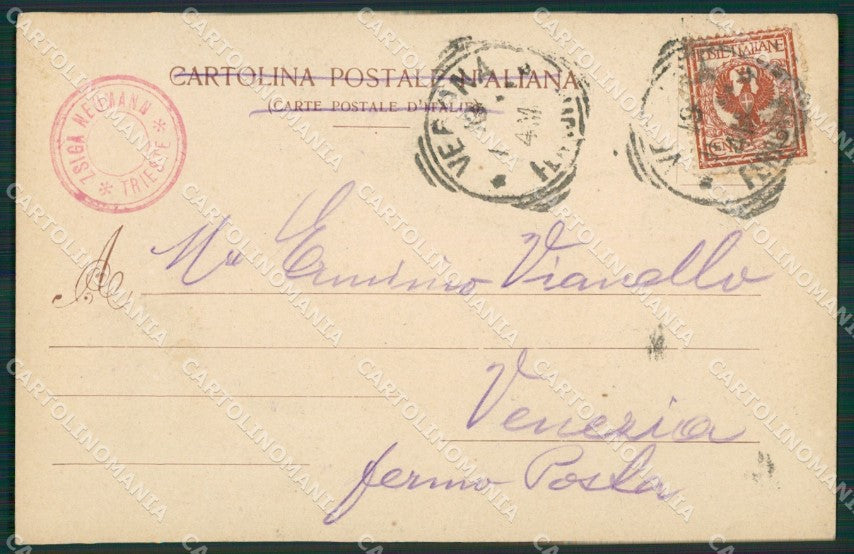 CARTOLINA POSTALE ITALIANA
(CARTE POSTALE D'ITALIE)
ZSIGA NEUMANN * TRIESTE *
VERONA
4M
POSTE ITALIANE
A
Mr Erminio Vianello
Venezia
fermo Posta
CARTOLINOMANIA